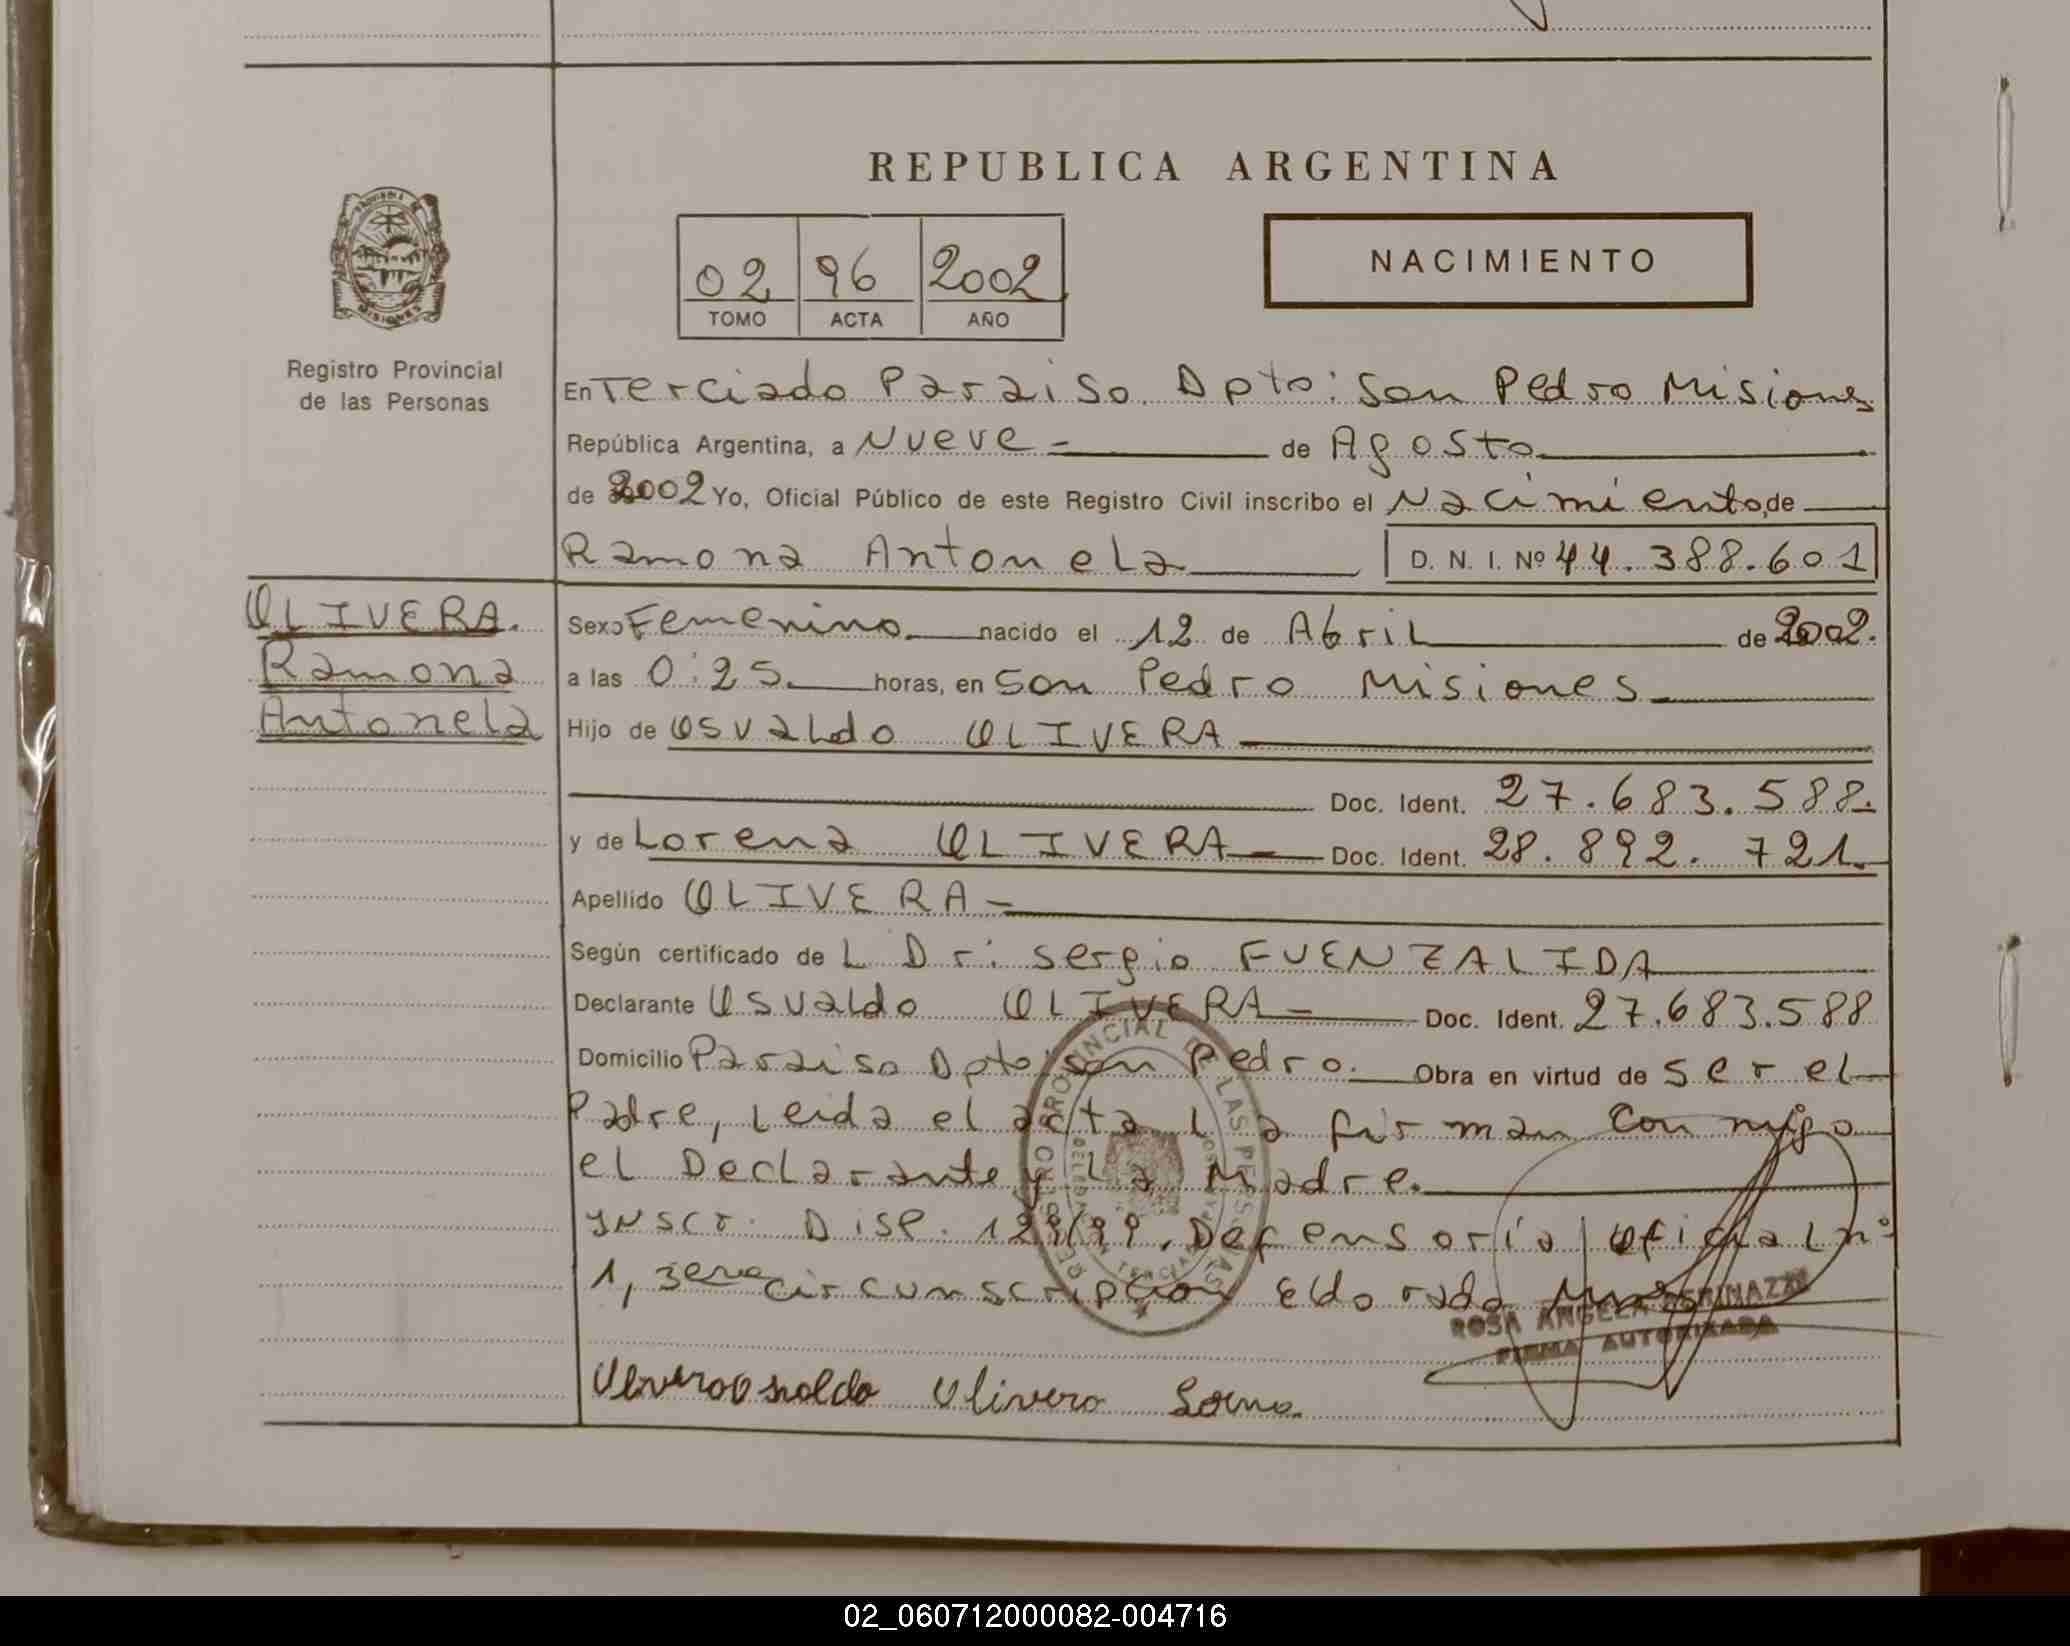 REPUBLICA ARGENTINA
02 96 2002
TOMO ACTA AÑO
NACIMIENTO
MISIONES
Registro Provincial
de las Personas
En Terciado Paraiso Dpto: San Pedro Misiones
República Argentina, a Nueve - de Agosto
de 2002 Yo, Oficial Público de este Registro Civil inscribo el Nacimiento, de
Ramona Antonela D. N. I. Nº 44.388.601
OLIVERA.
Ramona
Antonela
Sexo Femenino nacido el 12 de Abril de 2002.
a las 0:25 horas, en San Pedro Misiones
Hijo de Osvaldo OLIVERA
Doc. Ident. 27.683.588.
y de Lorena OLIVERA Doc. Ident. 28.892.721.
Apellido OLIVERA -
Según certificado de L Dr: Sergio FUENZALIDA
Declarante Osvaldo OLIVERA Doc. Ident. 27.683.588
Domicilio Paraiso Dpto: San Pedro. Obra en virtud de ser el
Padre, Leida el acta La firman con migo
el Declarante y La Madre.
Inscr. Disp. 129/99. Defensoría Oficial nº
1, 3era circunscripcion Eldorado Mnes
REGISTRO PROVINCIAL DE LAS PERSONAS
ROSA ANGELA
FIRMA AUTORIZADA
Olivera Osvaldo Olivera Lorena
02_060712000082-004716